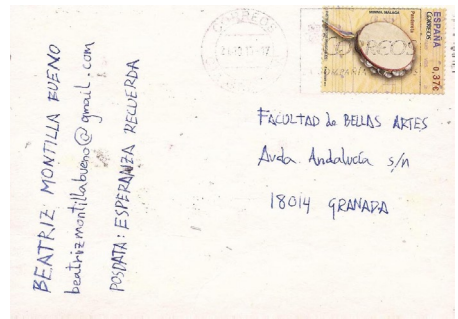 BEATRIZ MONTILLA BUENO
beatrizmontillabueno@gmail.com
POSDATA: ESPERANZA RECUERDA
CORREOS
ESPAÑA
CORREOS
0,37€
Pandereta
CORREOS
FACULTAD de BELLAS ARTES
Avda. Andalucía s/n
18014 GRANADA